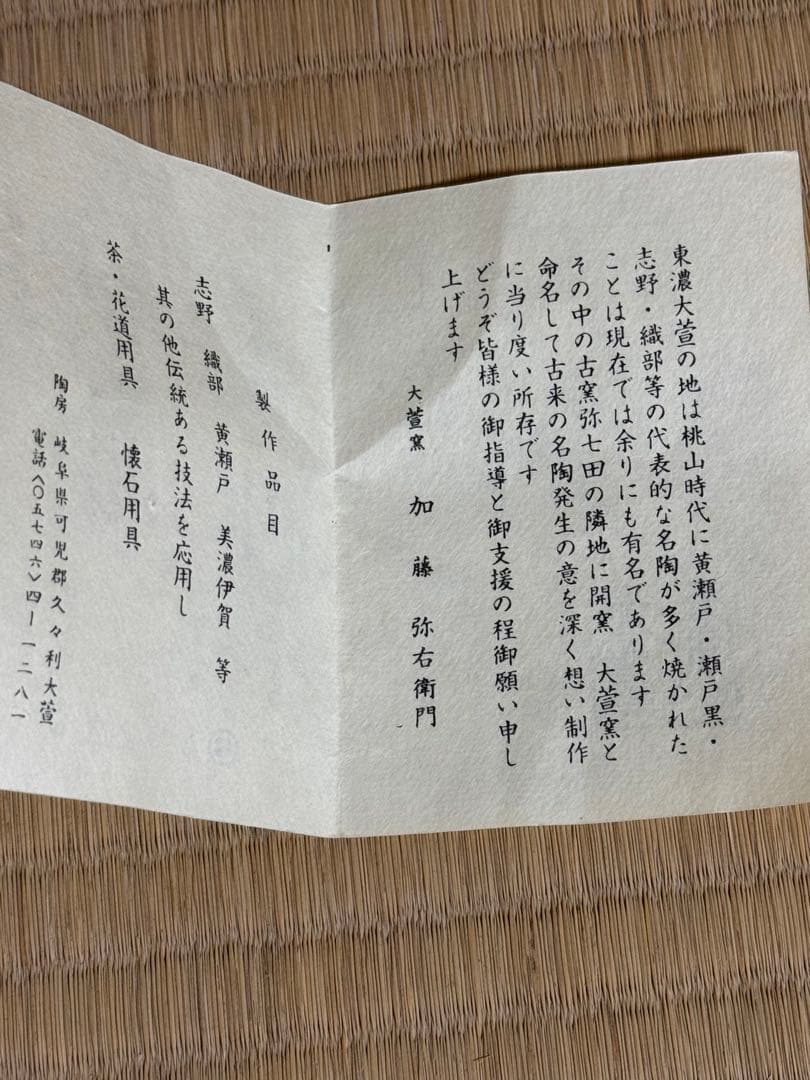 東濃大萱の地は桃山時代に黄瀬戸・瀬戸黒・
志野・織部等の代表的な名陶が多く焼かれた
ことは現在では余りにも有名であります
その中の古窯弥七田の隣地に開窯 大萱窯と
命名して古来の名陶発生の意を深く想い制作
に当り度い所存です
どうぞ皆様の御指導と御支援の程御願い申し
上げます
大萱窯 加藤弥右衛門
製作品目
志野 織部 黄瀬戸 美濃伊賀 等
其の他伝統ある技法を応用し
茶・花道用具 懐石用具
陶房 岐阜県可児郡久々利大萱
電話〈〇五七四六〉四ー一二八一